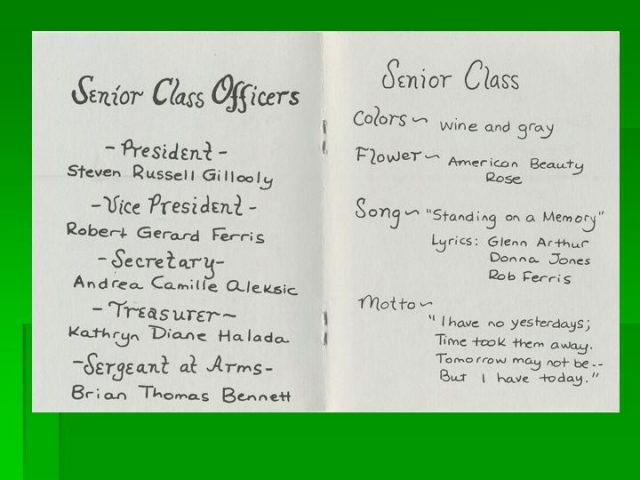 Senior Class Officers
- President -
Steven Russell Gillooly
- Vice President -
Robert Gerard Ferris
- Secretary-
Andrea Camille Aleksic
- Treasurer~
Kathryn Diane Halada
-Sergeant at Arms-
Brian Thomas Bennett
Senior Class
Colors~ wine and gray
Flower~ American Beauty
Rose
Song~ "Standing on a Memory"
Lyrics: Glenn Arthur
Donna Jones
Rob Ferris
Motto~
"I have no yesterdays;
Time took them away.
Tomorrow may not be--
But I have today."